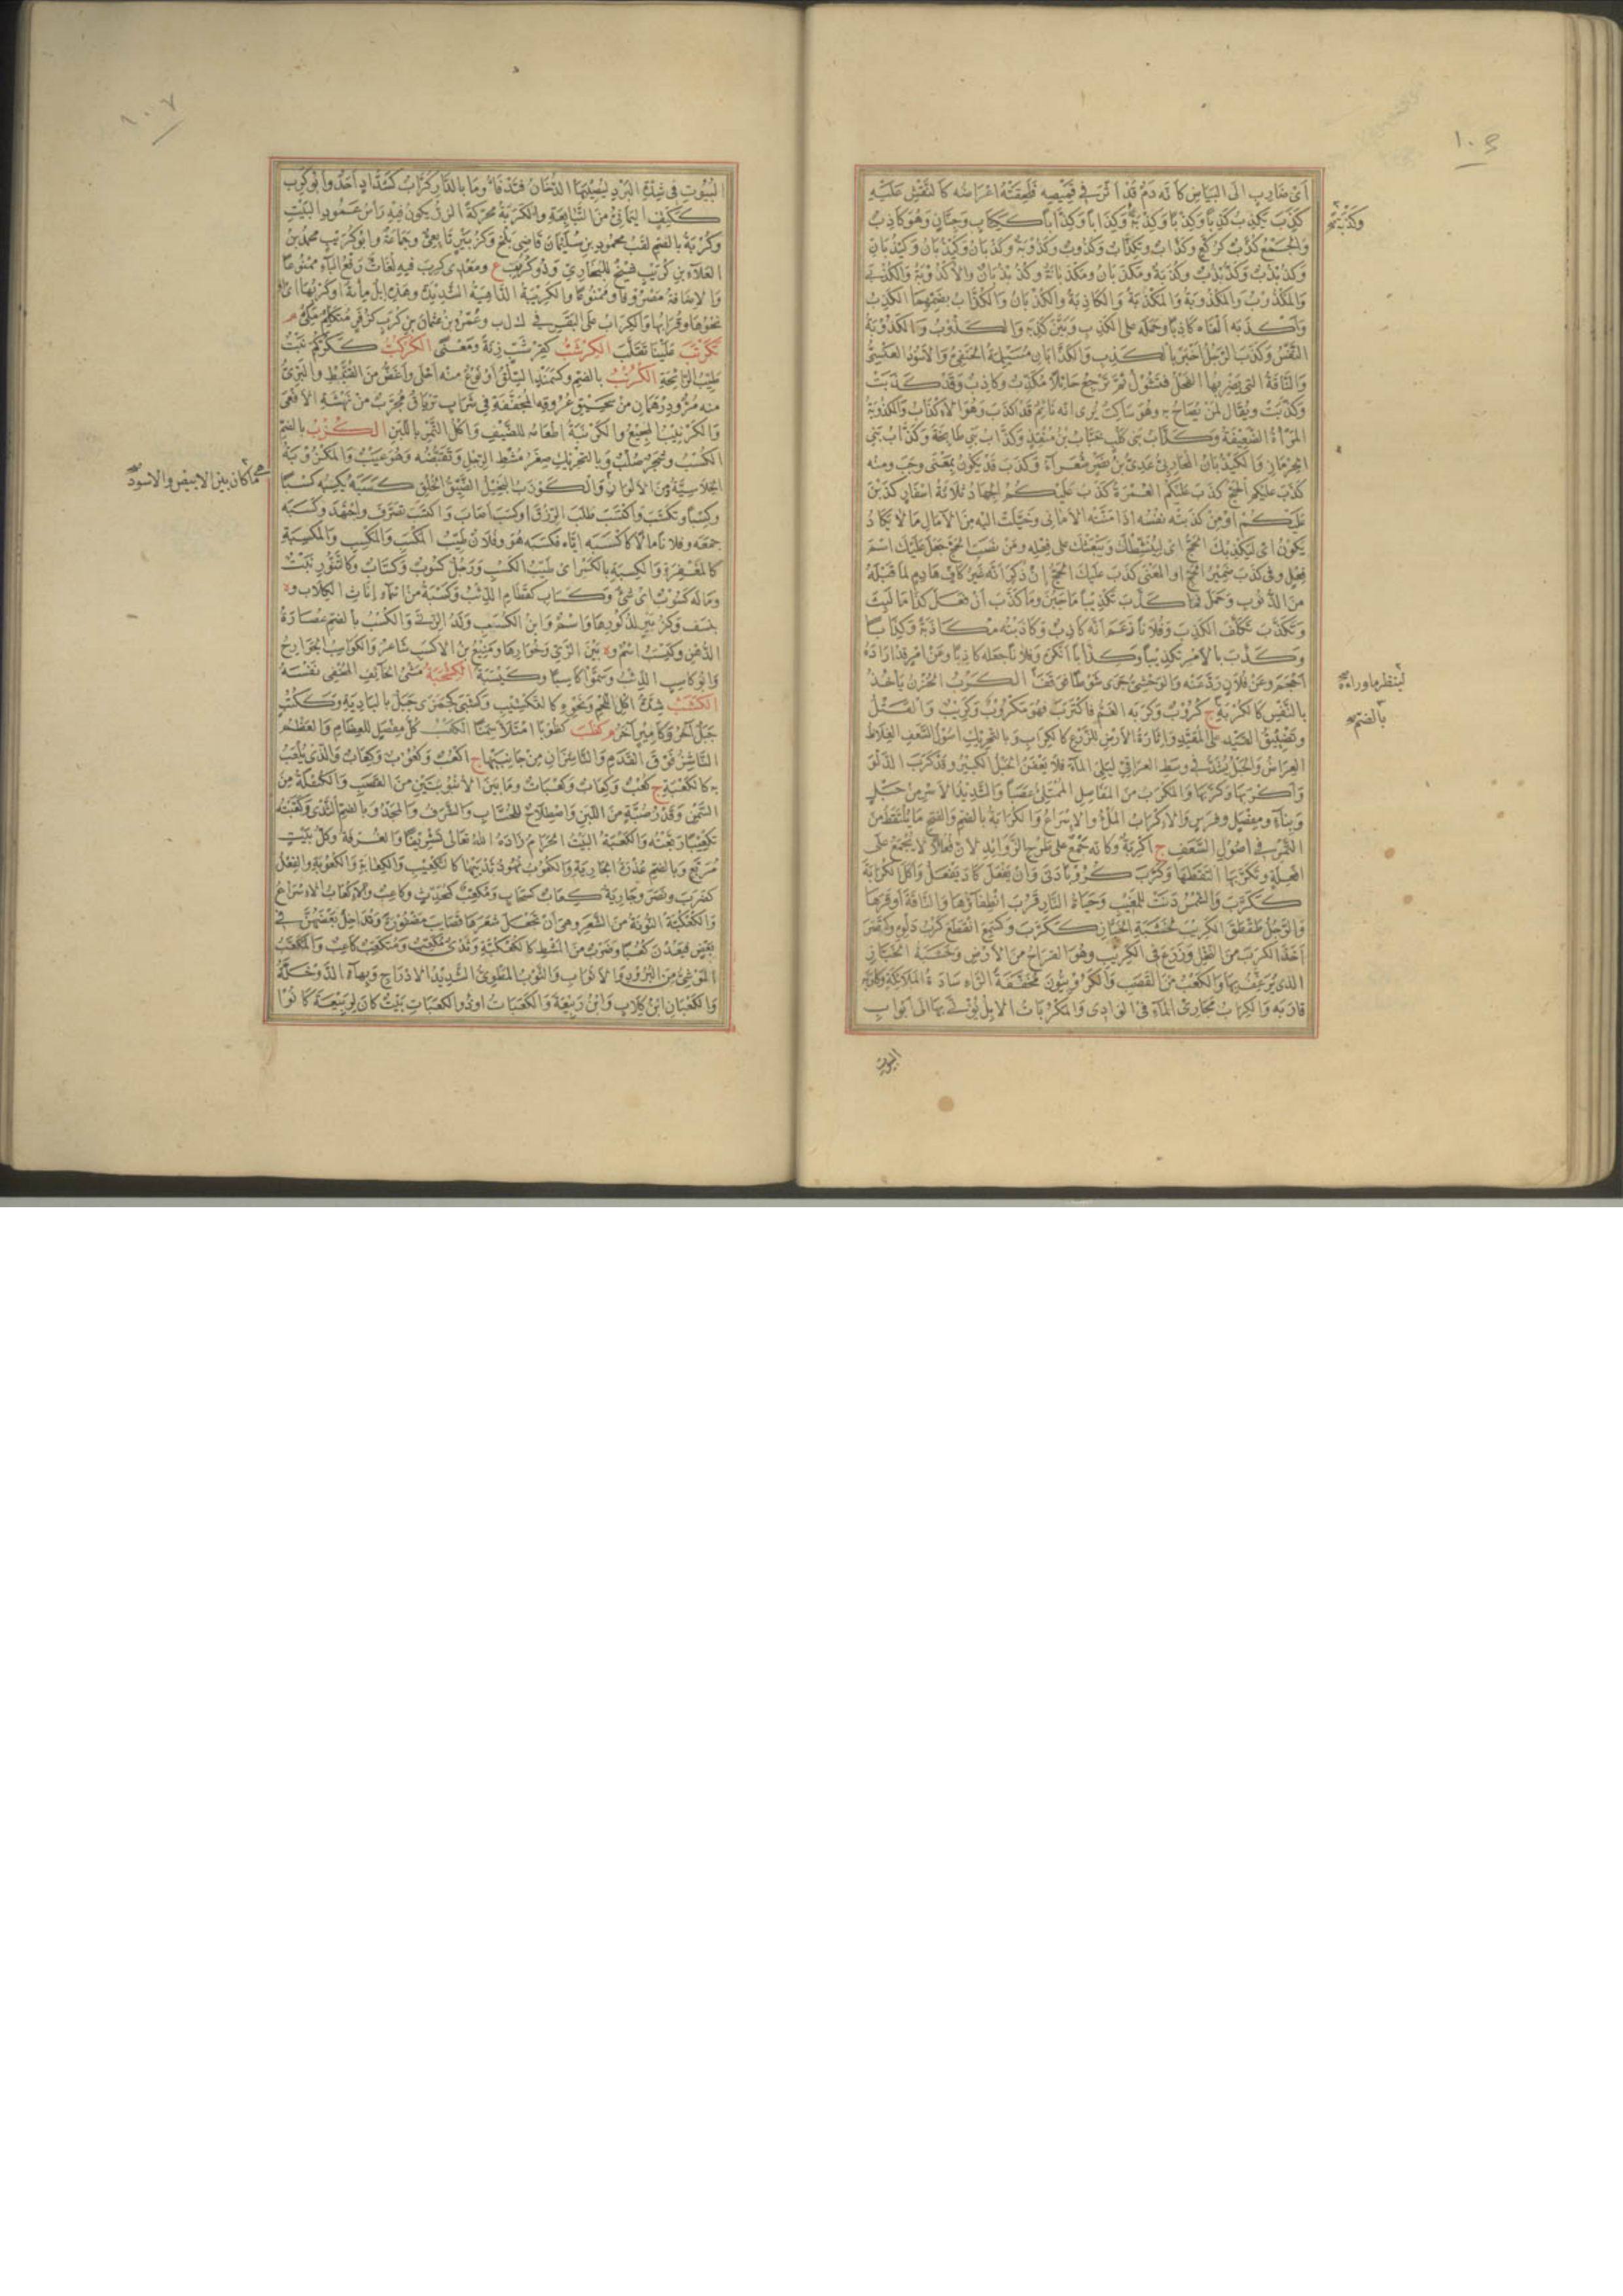 اى ضارب الى البياض كانه دم قد اثر فى قميصه فلحقته اعراضه كالنقش عليه
كذب يكذب كذبا وكذبا وكذبة وكذابا وكذابا ككتاب وجنان وهو كاذب
وكذبة صح
والجمع كذب كركع وكذاب وتكذاب وكذوب وكذوبة وكذبان وكيذبان وكيذبان
وكذبذب وكذبذب وكذبة ومكذبان ومكذبانة وكذبذبان والاكذوبة والكذبى
والمكذوب والمكذوبة والمكذبة والكاذبة والكذبان والكذاب بضمهما الكذب
واكذبه الفاه كاذبا وحمله على الكذب وبين كذبه والكذوب والكذوبة
النفس وكذب الرجل اخبر بالكذب والكذابان مسيلمة الحنفى والاسود العنسى
والناقة التى يضربها الفحل فتشول ثم ترجع حائلا مكذب وكاذب وقد كذبت
وكذبت ويقال لمن يصاح به وهو ساكت يرى انه نائم قد اكذب وهو الاكذاب والمكذوبة
المرأة الضعيفة وكذاب بنى كلب جناب بن منقذ وكذاب بنى طابخة وكذاب بنى
الحرماز والكيذبان المحاربى عدى بن نصر شعراء وكذب قد يكون بمعنى وجب ومنه
كذب عليكم الحج كذب عليكم العمرة كذب عليكم الجهاد ثلاثة اسفار كذبن
عليكم او من كذبته نفسه اذا منته الامانى وخيلت اليه من الآمال ما لا يكاد
يكون اى ليكذبك الحج اى لينشطك ويبعثك على فعله ومن نصب الحج جعل عليك اسم
فعل وفى كذب ضمير الحج او المعنى كذب عليك الحج ان ذكر انه غير كاف هادم لما قبله
من الذنوب وحمل فما كذب تكذيبا ما جبن وما كذب ان فعل كذا ما لبث
وتكذب تكلف الكذب وفلانا زعم انه كاذب وكاذبته مكاذبة وكذابا
وكذب بالامر تكذيبا وكذابا انكره وفلانا جعله كاذبا وعن امر قد اراده
احجم وعن فلان رد عنه والوحشى جرى شوطا فوقف الكرب الحزن يأخذ
لينظر ما وراءه صح
بالنفس كالكربة ج كروب وكربه الغم فاكترب فهو مكروب وكريب والفتل
بالضم صح
وتضييق القيد على المقيد واثارة الارض للزرع كالكراب وبالتحريك اصول السعف الغلاظ
العراض والحبل يشد فى وسط العراقى ليلى الماء فلا يعفن الحبل الكبير وقد كرب الدلو
واكربها وكربها والمكرب من المفاصل الممتلئ عصبا والشديد الاسر من حبل
وبناء ومفصل وفرس والاكراب الملء والاسراع والكرابة بالضم والفتح ما يلتقط من
التمر فى اصول السعف ج اكربة وكانه جمع على طرح الزوائد لان فعالا لا يجمع على
افعلة وتكربها التقطها وكرب كروبا دنا وان يفعل كاد يفعل واكل الكرابة
ككرب والشمس دنت للمغيب وحياة النار قرب انطفاؤها والناقة اوقرها
والرجل طقطق الكريب لخشبة الخباز ككرب وكسمع انقطع كرب دلوه وكنصر
اخذ الكرب من النخل وزرع فى الكريب وهو القراح من الارض وخشبة الخباز
الذى يرغف بها والكعب من القصب والكروبيون مخففة الراء سادة الملائكة وكاربه
قاربه والكراب مجارى الماء فى الوادى والمكربات الابل يؤتى بها الى ابواب
البيوت
البيوت فى شدة البرد ليصيبها الدخان فتدفأ وما بالدار كراب كشداد احد وابو كرب
ككتف اليمانى من التبابعة والكربة محركة الزر يكون فيه رأس عمود البيت
وكربة بالضم لقب محمود بن سليمان قاضى بلخ وكزبير تابعى وجماعة وابو كريب محمد بن
العلاء بن كريب شيخ للبخارى وذو كريب ع ومعدى كرب فيه لغات رفع الباء ممنوعا
والاضافة مصروفا وممنوعا والكريبة الداهية الشديدة وهذه ابل مائة او كربها اى
نحوها وقرابها والكراب على البقر فى ك ل ب وعمرو بن عثمان بن كرب كزفر متكلم مكى م
تكرتب علينا تقلب الكرشب كقرشب زنة ومعنى الكركب ككركم نبت
طيب الرائحة الكرنب بالضم وكسمند السلق او نوع منه احلى واغض من القنبيط والبرى
منه مر ودرهمان من سحيق عروقه المجففة فى شراب ترياق مجرب من نهشة الافعى
والكرنيب المجيع والكرنبة اطعامه للضيف واكل التمر باللبن الكزب بالضم
الكسب وشجر صلب وبالتحريك صغر مشط الرجل وتقبضه وهو عيب والمكزوبة
الخلاسية من الالوان والكوزب البخيل الضيق الخلق كسبه يكسبه كسبا
ما كان بين الابيض والاسود صح
وكسبا وتكسب واكتسب طلب الرزق او كسب اصاب واكتسب تصرف واجتهد وكسبه
جمعه وفلانا مالا كاكسبه اياه فكسبه هو وفلان طيب المكسب والمكسب والمكسبة
كالمغفرة والكسبة بالكسر اى طيب الكسب ورجل كسوب وكساب وكتنور نبت
وماله كسوب اى شئ وكساب كقطام الذئب وكسبة من اسماء اناث الكلاب وة
بنسف وكزبير للذكورها واسم وابن الكسيب ولد الزنا والكسب بالضم عصارة
الدهن وكيسب اسم وة بين الرى وخوارها ومنيع بن الاكسب شاعر والكواسب الجوارح
وابو كاسب الذئب وسموا كاسبا وكيسبة الكسحبة مشى الخائف المخفى نفسه
الكشب شدة اكل اللحم ونحوه كالتكشيب وكشبى كجمزى جبل بالبادية وككتف
جبل آخر وكامير آخر م كظب كظوبا امتلأ سمنا الكعب كل مفصل للعظام والعظم
الناشز فوق القدم والناشزان من جانبيها ج اكعب وكعوب وكعاب والذى يلعب
به كالكعبة ج كعب وكعاب وكعبات وما بين الانبوبتين من القصب والكتلة من
السمن وقدر صبة من اللبن واصطلاح للحساب والشرف والمجد وبالضم الثدى وكعبته
تكعيبا ربعته والكعبة البيت الحرام زاده الله تعالى تشريفا والغرفة وكل بيت
مربع وبالضم عذرة الجارية والكعوب نهود ثدييها كالتكعيب والكعابة والكعوبة والفعل
كضرب ونصر وجارية كعاب كسحاب ومكعب كمحدث وكاعب والاكعاب الاسراع
والكعكبة النونة من الشعر وهى ان تجعل شعرها قضايب مضفورة وتداخل بعضهن فى
بعض فيعدن كعبا وضرب من المشط كالكعكبية وثدى مكعب ومتكعب كاعب والمكعب
الموشى من البرود والاثواب والثوب المطوى الشديد الادراج وبهاء الدوخلة
والكعبان ابن كلاب وابن ربيعة والكعبات او ذو الكعبات بيت كان لربيعة كانوا